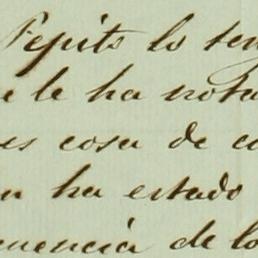 Pepito lo ten
e le ha nota
es cosa de c
n ha estado
uencia de lo